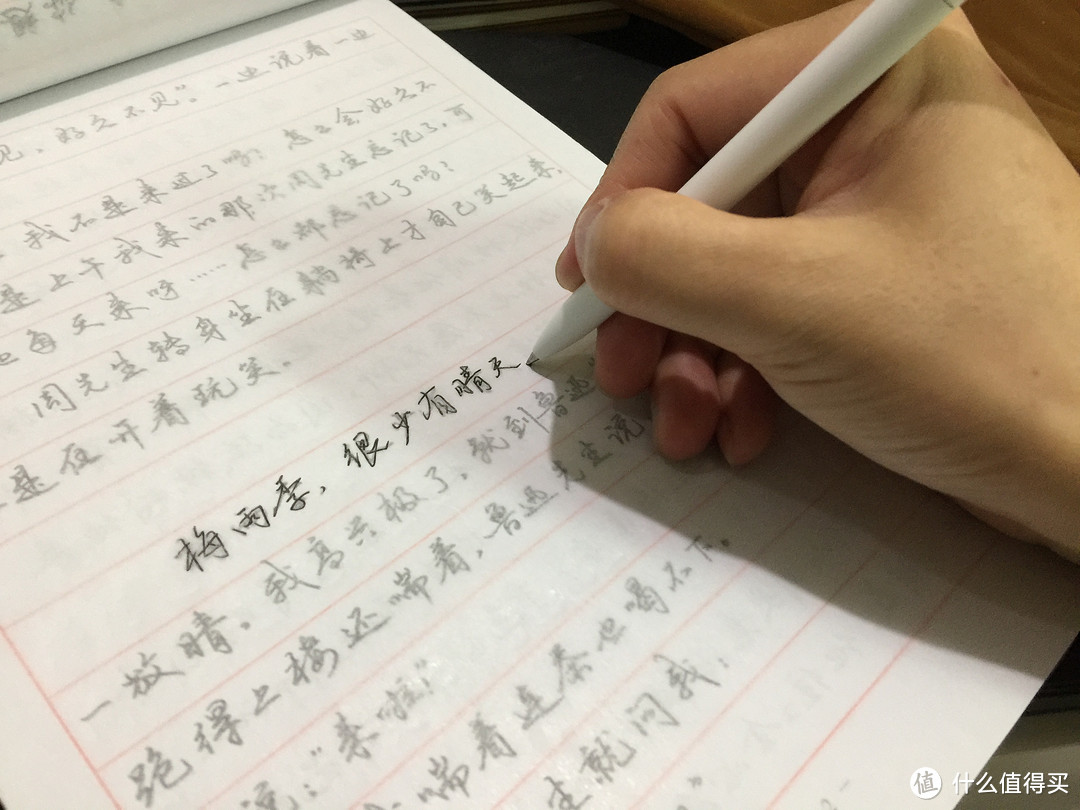 见，好久不见”。一边说着一边
我不是来过了吗？怎么会好久不
是上午我来的那次周先生忘记了，可
每天来呀……怎么都忘记了吗？
周先生转身坐在躺椅上才自己笑起来，
是在开着玩笑。
梅雨季，很少有晴天
一放晴，我高兴极了，就到鲁迅
跑得上楼还喘着，鲁迅先生说
说：“来啦！”
喘着连茶也喝不下。
生就问我：
值 什么值得买